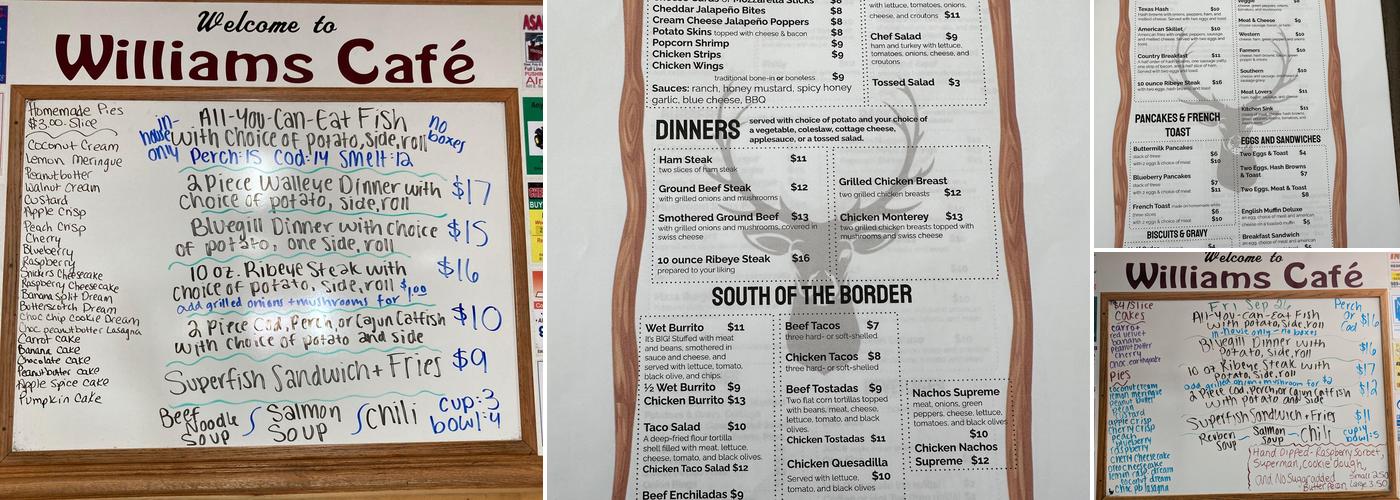 Welcome to
Williams Café
Homemade Pies
$3.00 Slice
Coconut Cream
Lemon Meringue
Peanutbutter
Walnut Cream
Custard
Apple Crisp
Peach Crisp
Cherry
Blueberry
Raspberry
Snickers Cheesecake
Raspberry Cheesecake
Banana Split Dream
Butterscotch Dream
Choc Chip Cookie Dream
Choc peanutbutter Lasagna
Carrot cake
Banana cake
Chocolate cake
Peanutbutter cake
Apple Spice cake
Pumpkin Cake
All-You-Can-Eat Fish
in-house only
with choice of potato, side, roll
no boxes
Perch:15 Cod:14 Smelt:12
2 Piece Walleye Dinner with
choice of potato, side, roll
$17
Bluegill Dinner with choice
of potato, one side, roll
$15
10 oz. Ribeye Steak with
choice of potato, side, roll
$16
add grilled onions + mushrooms for $1.00
2 Piece Cod, Perch, or Cajun Catfish
with choice of potato and side
$10
Superfish Sandwich + Fries $9
Beef Noodle Soup
Salmon Soup
Chili
cup:3
bowl:4
Cheddar Jalapeño Bites $8
Cream Cheese Jalapeño Poppers $8
Potato Skins topped with cheese & bacon $8
Popcorn Shrimp $9
Chicken Strips $9
Chicken Wings
traditional bone-in or boneless $9
Sauces: ranch, honey mustard, spicy honey
garlic, blue cheese, BBQ
with lettuce, tomatoes, onions,
cheese, and croutons $11
Chef Salad $9
ham and turkey with lettuce,
tomatoes, onions, cheese, and
croutons
Tossed Salad $3
DINNERS
served with choice of potato and your choice of
a vegetable, coleslaw, cottage cheese,
applesauce, or a tossed salad.
Ham Steak $11
two slices of ham steak
Ground Beef Steak $12
with grilled onions and mushrooms
Smothered Ground Beef $13
with grilled onions and mushrooms, covered in
swiss cheese
10 ounce Ribeye Steak $16
prepared to your liking
Grilled Chicken Breast
two grilled chicken breasts $12
Chicken Monterey $13
two grilled chicken breasts topped with
mushrooms and swiss cheese
SOUTH OF THE BORDER
Wet Burrito $11
It's BIG! Stuffed with meat
and beans, smothered in
sauce and cheese, and
served with lettuce, tomato,
black olive, and chips.
½ Wet Burrito $9
Chicken Burrito $13
Taco Salad $10
A deep-fried flour tortilla
shell filled with meat, lettuce,
cheese, tomato, and black olives.
Chicken Taco Salad $12
Beef Enchiladas $9
Beef Tacos $7
three hard- or soft-shelled
Chicken Tacos $8
three hard- or soft-shelled
Beef Tostadas $9
Two flat corn tortillas topped
with beans, meat, cheese,
lettuce, tomato, and black
olives.
Chicken Tostadas $11
Chicken Quesadilla
Served with lettuce, $10
tomato, and black olives
Nachos Supreme
meat, onions, green
peppers, cheese, lettuce,
tomatoes, and black olives
$10
Chicken Nachos
Supreme $12
Texas Hash $10
American Skillet $10
Country Breakfast $11
10 ounce Ribeye Steak $16
with two eggs, hash browns, and toast
PANCAKES & FRENCH
TOAST
Buttermilk Pancakes
stack of three $6
with 2 eggs & choice of meat $10
Blueberry Pancakes
stack of three $7
with 2 eggs & choice of meat $11
French Toast made on homemade white
three slices $6
with 2 eggs & choice of meat $10
BISCUITS & GRAVY
Meat & Cheese $9
Western $10
Farmers $10
Southern $10
Meat Lovers $11
Kitchen Sink $11
EGGS AND SANDWICHES
Two Eggs & Toast $4
Two Eggs, Hash Browns
& Toast $7
Two Eggs, Meat & Toast
$8
English Muffin Deluxe
Breakfast Sandwich
Welcome to
Williams Café
$4/Slice
Cakes
carrot
red velvet
banana
peanutbutter
cherry
choc. earthquake
Pies
coconut cream
lemon meringue
peanut butter
pecan
custard
apple crisp
cherry crisp
peach
blueberry
raspberry
cherry cheesecake
Fri Sep 26
All-You-Can-Eat Fish
with potato, side, roll
in-house only - no boxes
Perch or Cod $16
Bluegill Dinner with
potato, side, roll
$16
10 oz Ribeye Steak with
potato, side, roll
$17
2 Piece Cod, Perch, or Cajun Catfish
with potato and side
$12
Superfish Sandwich + Fries $11
Reuben Soup
Salmon Soup
Chili
bowl:5
Hand Dipped - Raspberry Sorbet,
Superman, Cookie Dough,
and No Sugar added
Butter Pecan